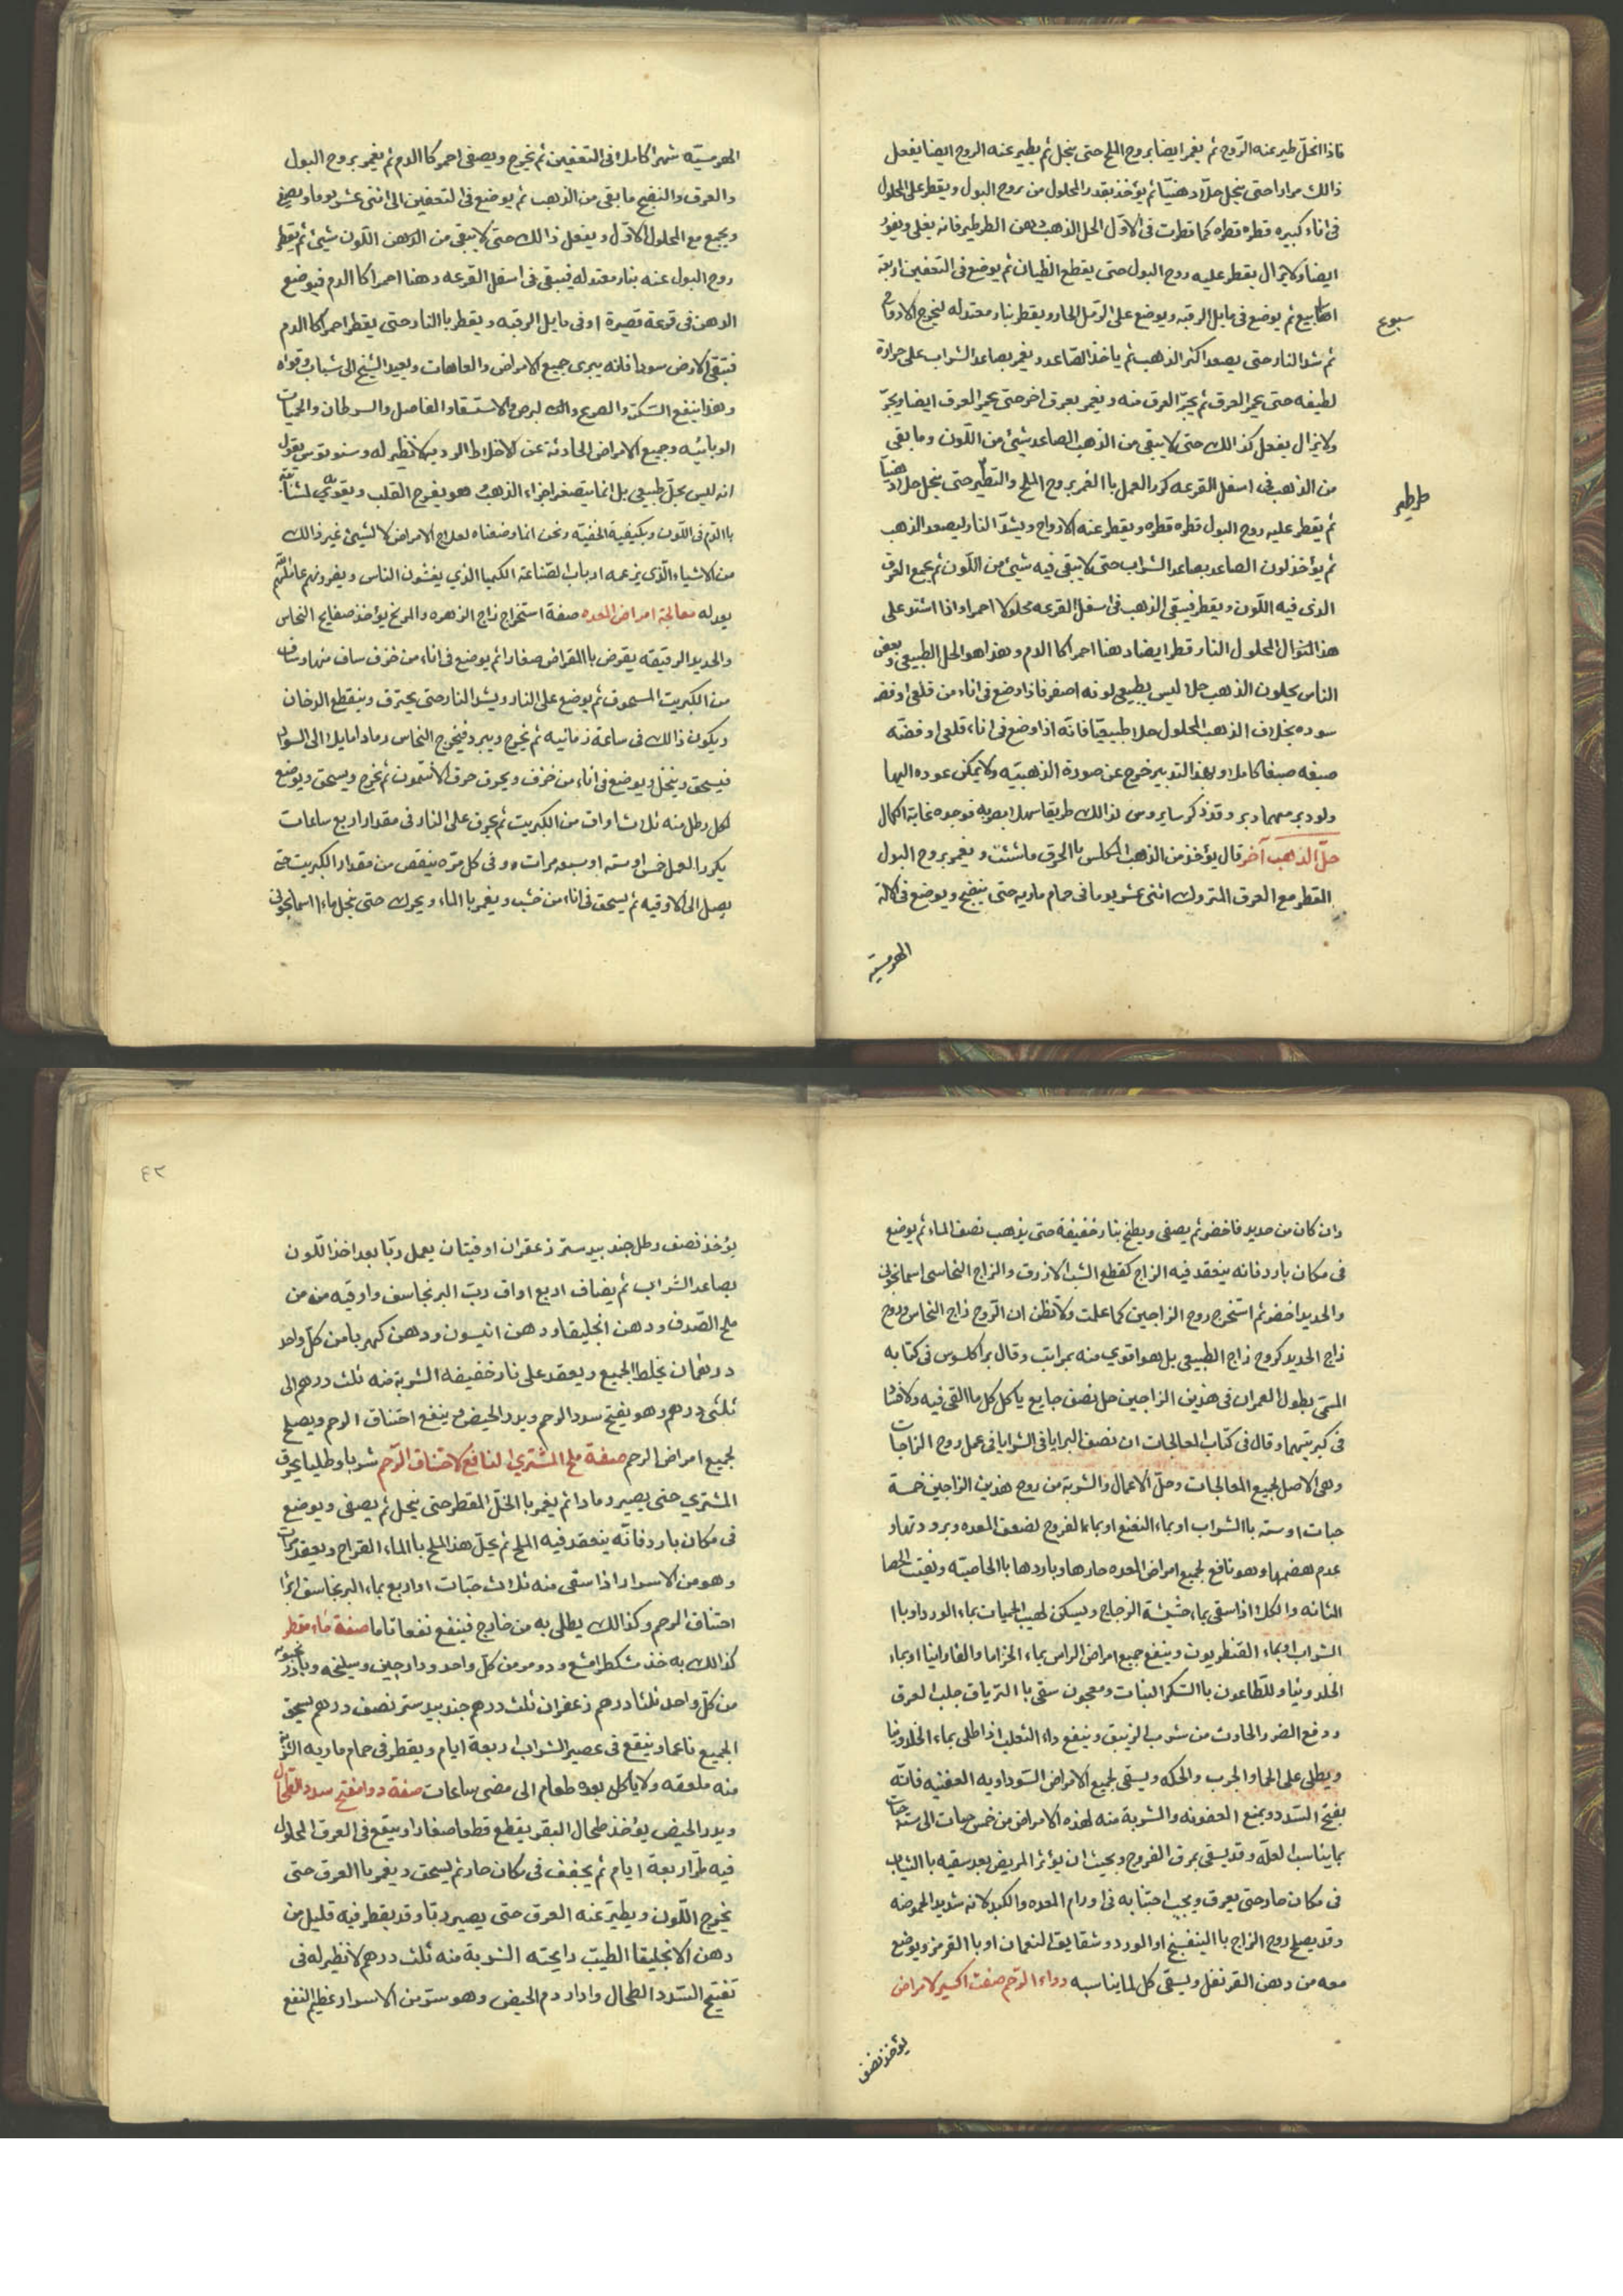 فاذا انحل طير عنه الروح ثم يغمر ايضا بروح الملح حتى ينحل ثم يطير عنه الروح ايضا يفعل
ذالك مرارا حتى ينحل حلا دهنيا ثم يؤخذ بقدر المحلول من روح البول ويقطر على المحلول
فى اناء كبيره قطره قطره كما قطرت فى الاول الحل الذهب دهن الطرطير فانه يغلى ويفور
ايضا ولا يزال يقطر عليه روح البول حتى يقطع الغليان ثم يوضع فى التعفين اربعة
اسابيع ثم يوضع فى مايل الرقبه ويوضع على الرمل الحار ويقطر بنار معتدله ليخرج الارواح
سبوع
ثم شد النار حتى يصعد اكثر الذهب ثم ياخذ الصاعد ويغمر بصاعد الشراب على حرارة
لطيفه حتى يحمر العرق ثم يجر العرق منه ويغمر بعرق اخر حتى يحمر العرق ايضا ويجر
ولا يزال يفعل كذالك حتى لا يبقى من الذهب الصاعد شيئ من اللون وما بقى
من الذهب فى اسفل القرعه كرر العمل باالغمر بروح الملح والتطير حتى ينحل حلا دهنيا
طرطير
ثم يقطر عليه روح البول قطره قطره ويقطر عنه الارواح ويشد النار ليصعد الذهب
ثم يؤخذ لون الصاعد بصاعد الشراب حتى لا يبقى فيه شيئ من اللون ثم يجمع العرق
الذى فيه اللون ويقطر فيبقى الذهب فى اسفل القرعه محلولا احمر واذا اشتد على
هذا المنوال المحلول النار قطر ايضا دهنا احمر كا الدم وهذا هو الحل الطبيعى وبعض
الناس يحلون الذهب حلا ليس بطبيعى لونه اصفر فاذا وضع فى اناء من قلعى او فضه
سوده بخلاف الذهب المحلول حلا طبيعيا فانه اذا وضع فى اناء قلعى او فضه
صبغه صبغا كاملا وبهذا التدبير خرج عن صورة الذهبيه ولا يمكن عوده اليها
ولو دبر مهما دبر وقد ذكر سايروس لذالك طريقا سهلا بصربه فوجده غاية الكمال
حل الذهب آخر قال يؤخذ من الذهب المكلس باالحرق ما شئت ويغمر بروح البول
القطر مع العرق المتروك اثنى عشر يوما فى حمام ماريه حتى ينضج ويوضع فى الالة
الهرمسيه
الهرمسيه شهرا كاملا فى التعفين ثم يخرج ويصفى احمر كا الدم ثم يغمر بروح البول
والعرق والنضج ما بقى من الذهب ثم يوضع فى التعفين الى اثنى عشر يوما ويصفى
ويجمع مع المحلول الاول ويفعل ذالك حتى لا يبقى من الدهن اللون شيئ ثم يقطر
روح البول عنه بنار معتدله فيبقى فى اسفل القرعه دهنا احمرا كا الدم فيوضع
الدهن فى قرعة قصيرة او فى مايل الرقبه ويقطر باالنار حتى يقطر احمر كا الدم
فتبقى الارض سودا فانه يبرى جميع الامراض والعاهات ويعيد الشيخ الى شبابه وقواه
وهذا ينفع السكتة والصرع والبرص والاستسقاء والمفاصل والسرطان والحميات
الوبائيه وجميع الامراض الحادثة عن الاخلاط الرديه لا نظير له وسنوتوس يقول
انه ليس بحل طبيعى بل انما يتصغر اجزاء الذهب وهو يفرح القلب ويقويه
باالدم فى اللون وبكيفية الخفيه ونحن انما وضعناه لعلاج الامراض لا لشيئ غير ذالك
من الاشياء الذى يزعمه ارباب الصناعة الكيميا الذي يغشون الناس ويغرونهم
بعدله معالجة امراض المعده صفة استخراج زاج الزهره والمريخ يؤخذ صفايح النحاس
والحديد الرقيقه يقرض باالمقراض صغارا ثم يوضع فى اناء من خزف ساف منها وساف
من الكبريت المسحوق ثم يوضع على النار ويشد النار حتى يحترق وينقطع الدخان
ويكون ذالك فى ساعة زمانيه ثم يخرج ويبرد فيخرج النحاس رمادا مايلا الى السواد
فيسحق وينخل ويوضع فى اناء من خزف ويحرق حرق الانتمون ثم يخرج ويسحق ويوضع
لكل رطل منه ثلاث اواق من الكبريت ثم يحرق على النار فى مقدار اربع ساعات
يكرر العمل خمس او سته او سبعه مرات وفى كل مره ينقص من مقدار الكبريت حتى
يصل الى الاوقيه ثم يسحق فى اناء من خشب ويغمر باالماء ويحرك حتى ينحل ماءا اسمانجونى
وان كان من حديد فاخضر ثم يصفى ويطبخ بنار خفيفة حتى يذهب نصف الماء ثم يوضع
فى مكان بارد فانه ينعقد فيه الزاج كقطع الشب الازرق والزاج النحاسى اسمانجونى
والحديد اخضر ثم استخرج روح الزاجين كما علمت ولا تظن ان الروح زاج النحاس وروح
زاج الحديد كروح زاج الطبيعى بل هو اقوي منه بمراتب وقال براكلسوس فى كتابه
المسمى بطول العمر ان فى هذين الزاجين حل نصف جايع ياكل كل ما القى فيه
فى كبريتيهما وقال فى كتاب المعالجات ان نصف البرايا فى الشرايا فى عمل روح الزاجات
وهى الاصل لجميع المعالجات وحل الاعمال والشربة من روح هذين الزاجين خمسة
حبات او سته باالشراب او بماء النعنع او بماء الفروج لضعف المعده وبرودتها و
عدم هضمها وهو نافع لجميع امراض المعده حارها وباردها باالخاصيه وتفتت الحصا
المثانه والكلا اذا سقى بماء حشيشة الزجاج ويسكن لهيب الحميات بماء الورد او باا
الشراب او بماء القنطريون وينفع جميع امراض الراس بماء الخزاما والفاوانيا او بماء
الخلدونيا وللطاعون باالسكر النبات ومعجون ستى باالترياق جلب العرق
ودفع الضرر الحادث من شرب الزيبق وينفع داء الثعلب اذا طلى بماء الخلدونيا
ويطلى على الحما والجرب والحكه ويسقى لجميع الامراض السوداويه العفنيه فانه
يفتح السدد ويمنع العفونه والشربة منه لهذه الامراض من خمس حبات الى سته حبات
بما يناسب العله وقد يسقى بمرق الفروج وبحيث ان يدثر المريض بعد سقيه باالثياب
فى مكان حار حتى يعرق ويجب اجتنابه فى اورام المعده والكبد لانه شديد الحموضه
وقد يصلح روح الزاج باالبنفسج او الورد وشقايق النعمان او باالقرمز ويوضع
معه من دهن القرنفل ويسقى كل لما يناسبه دواء الرحم صفت اكسير لامراض
يؤخذ نصف
٤٢
يؤخذ نصف رطل جندبيدستر زعفران اوقيتان يعمل ربا بعد اخذ اللون
بصاعد الشراب ثم يضاف اربع اواق رب البرنجاسف واوقيه من من
ملح الصدف ودهن انجليقا ودهن انيسون ودهن كهربا من كل واحد
درهمان يخلط الجميع ويعقد على نار خفيفه الشربة منه ثلث درهم الى
ثلثى درهم وهو يفتح سدد الرحم ويدر الحيض وينفع اختناق الرحم ويصلح
لجميع امراض الرحم صفة ملح المشتري النافع لاختناق الرحم شربا وطليا يحرق
المشتري حتى يصير رمادا ثم يغمر باالخل المقطر حتى ينحل ثم يصفى ويوضع
فى مكان بارد فانه ينعقد فيه الملح ثم يحل هذا الملح باالماء القراح ويعقد مرات
وهو من الاسرار اذا سقى منه ثلاث حبات او اربع بماء البرنجاسف ابرا
اختناق الرحم وكذالك يطلى به من خارج فينفع نفعا تاما صفة ماء مقطر
كذالك به خذ مشكطرامشع ودومو من كل واحد ودارجين وسليخه وبادرنجبويه
من كل واحد ثلثا درهم زعفران ثلث درهم جندبيدستر نصف درهم يسحق
الجميع ناعما وينقع فى عصير الشراب اربعة ايام ويقطر فى حمام ماريه الشربة
منه ملعقه ولا ياكل بعده طعام الى مضى ساعات صفة دوا مفتح سدد الطحال
ويدر الحيض يؤخذ طحال البقر يقطع قطعا صغارا وينقع فى العرق المحلول
فيه طرا اربعة ايام ثم يجفف فى مكان حار ثم يسحق ويغمر باالعرق حتى
يخرج اللون ويطير عنه العرق حتى يصير ربا وقد يقطر فيه قليل من
دهن الانجليقا الطيب رايحته الشربة منه ثلث درهم لا نظير له فى
تفتيح السدد الطحال وادرار دم الحيض وهو سر من الاسرار عظيم النفع